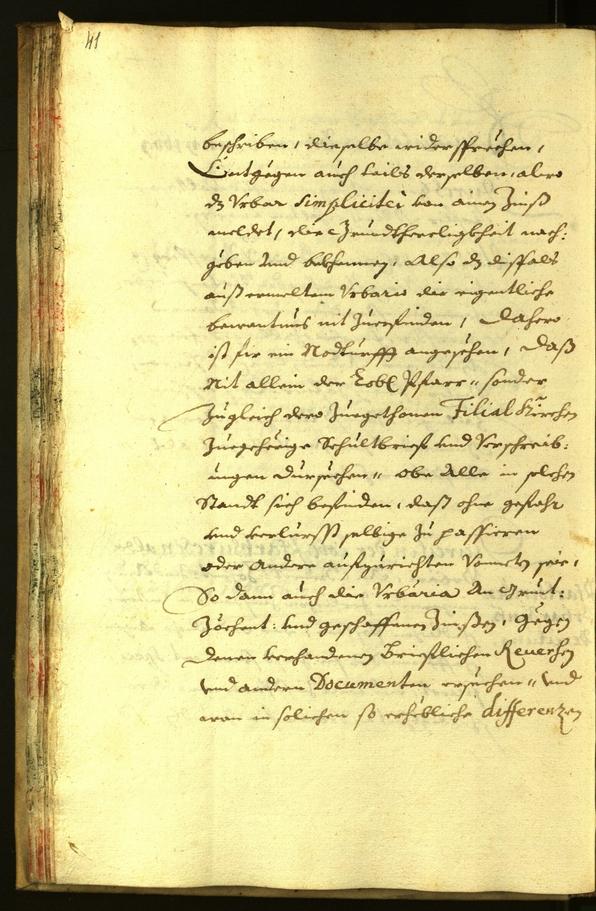 41
beschriben, dieselbe widersprechen,
Entgegen auch tails derselben, alwo
dz Vrbar simpliciter von ainen Zinß
meldet, die Grundtherrligkheit nach:
geben vnd bekhennen, Also dz dißfals
auß ermeltem Vrbario die eigentliche
bewantnus nit zuefinden, Dahero
ist für ein Nodturfft angesehen, daß
Nit allein der Lobl Pfarr= sonder
zugleich dero zuegethonen Filial Kirchen
zuegehörige Schultbrief vnd Verschreib:
ungen dursehen= obe Alle in solchen
Standt sich befinden, daß ohne gefahr
vnd verlurst selbige zu passieren
oder Andere aufzurichten Vonneten seie,
So dann auch die Vrbaria An Grunt:
Zöchent: vnd geschaffenen Zinßen, Gegen
denen verhandenen Brieflichen Reuersen
vnd andern Documenten ersuchen= vnd
wan in solichen so erhebliche differenzen